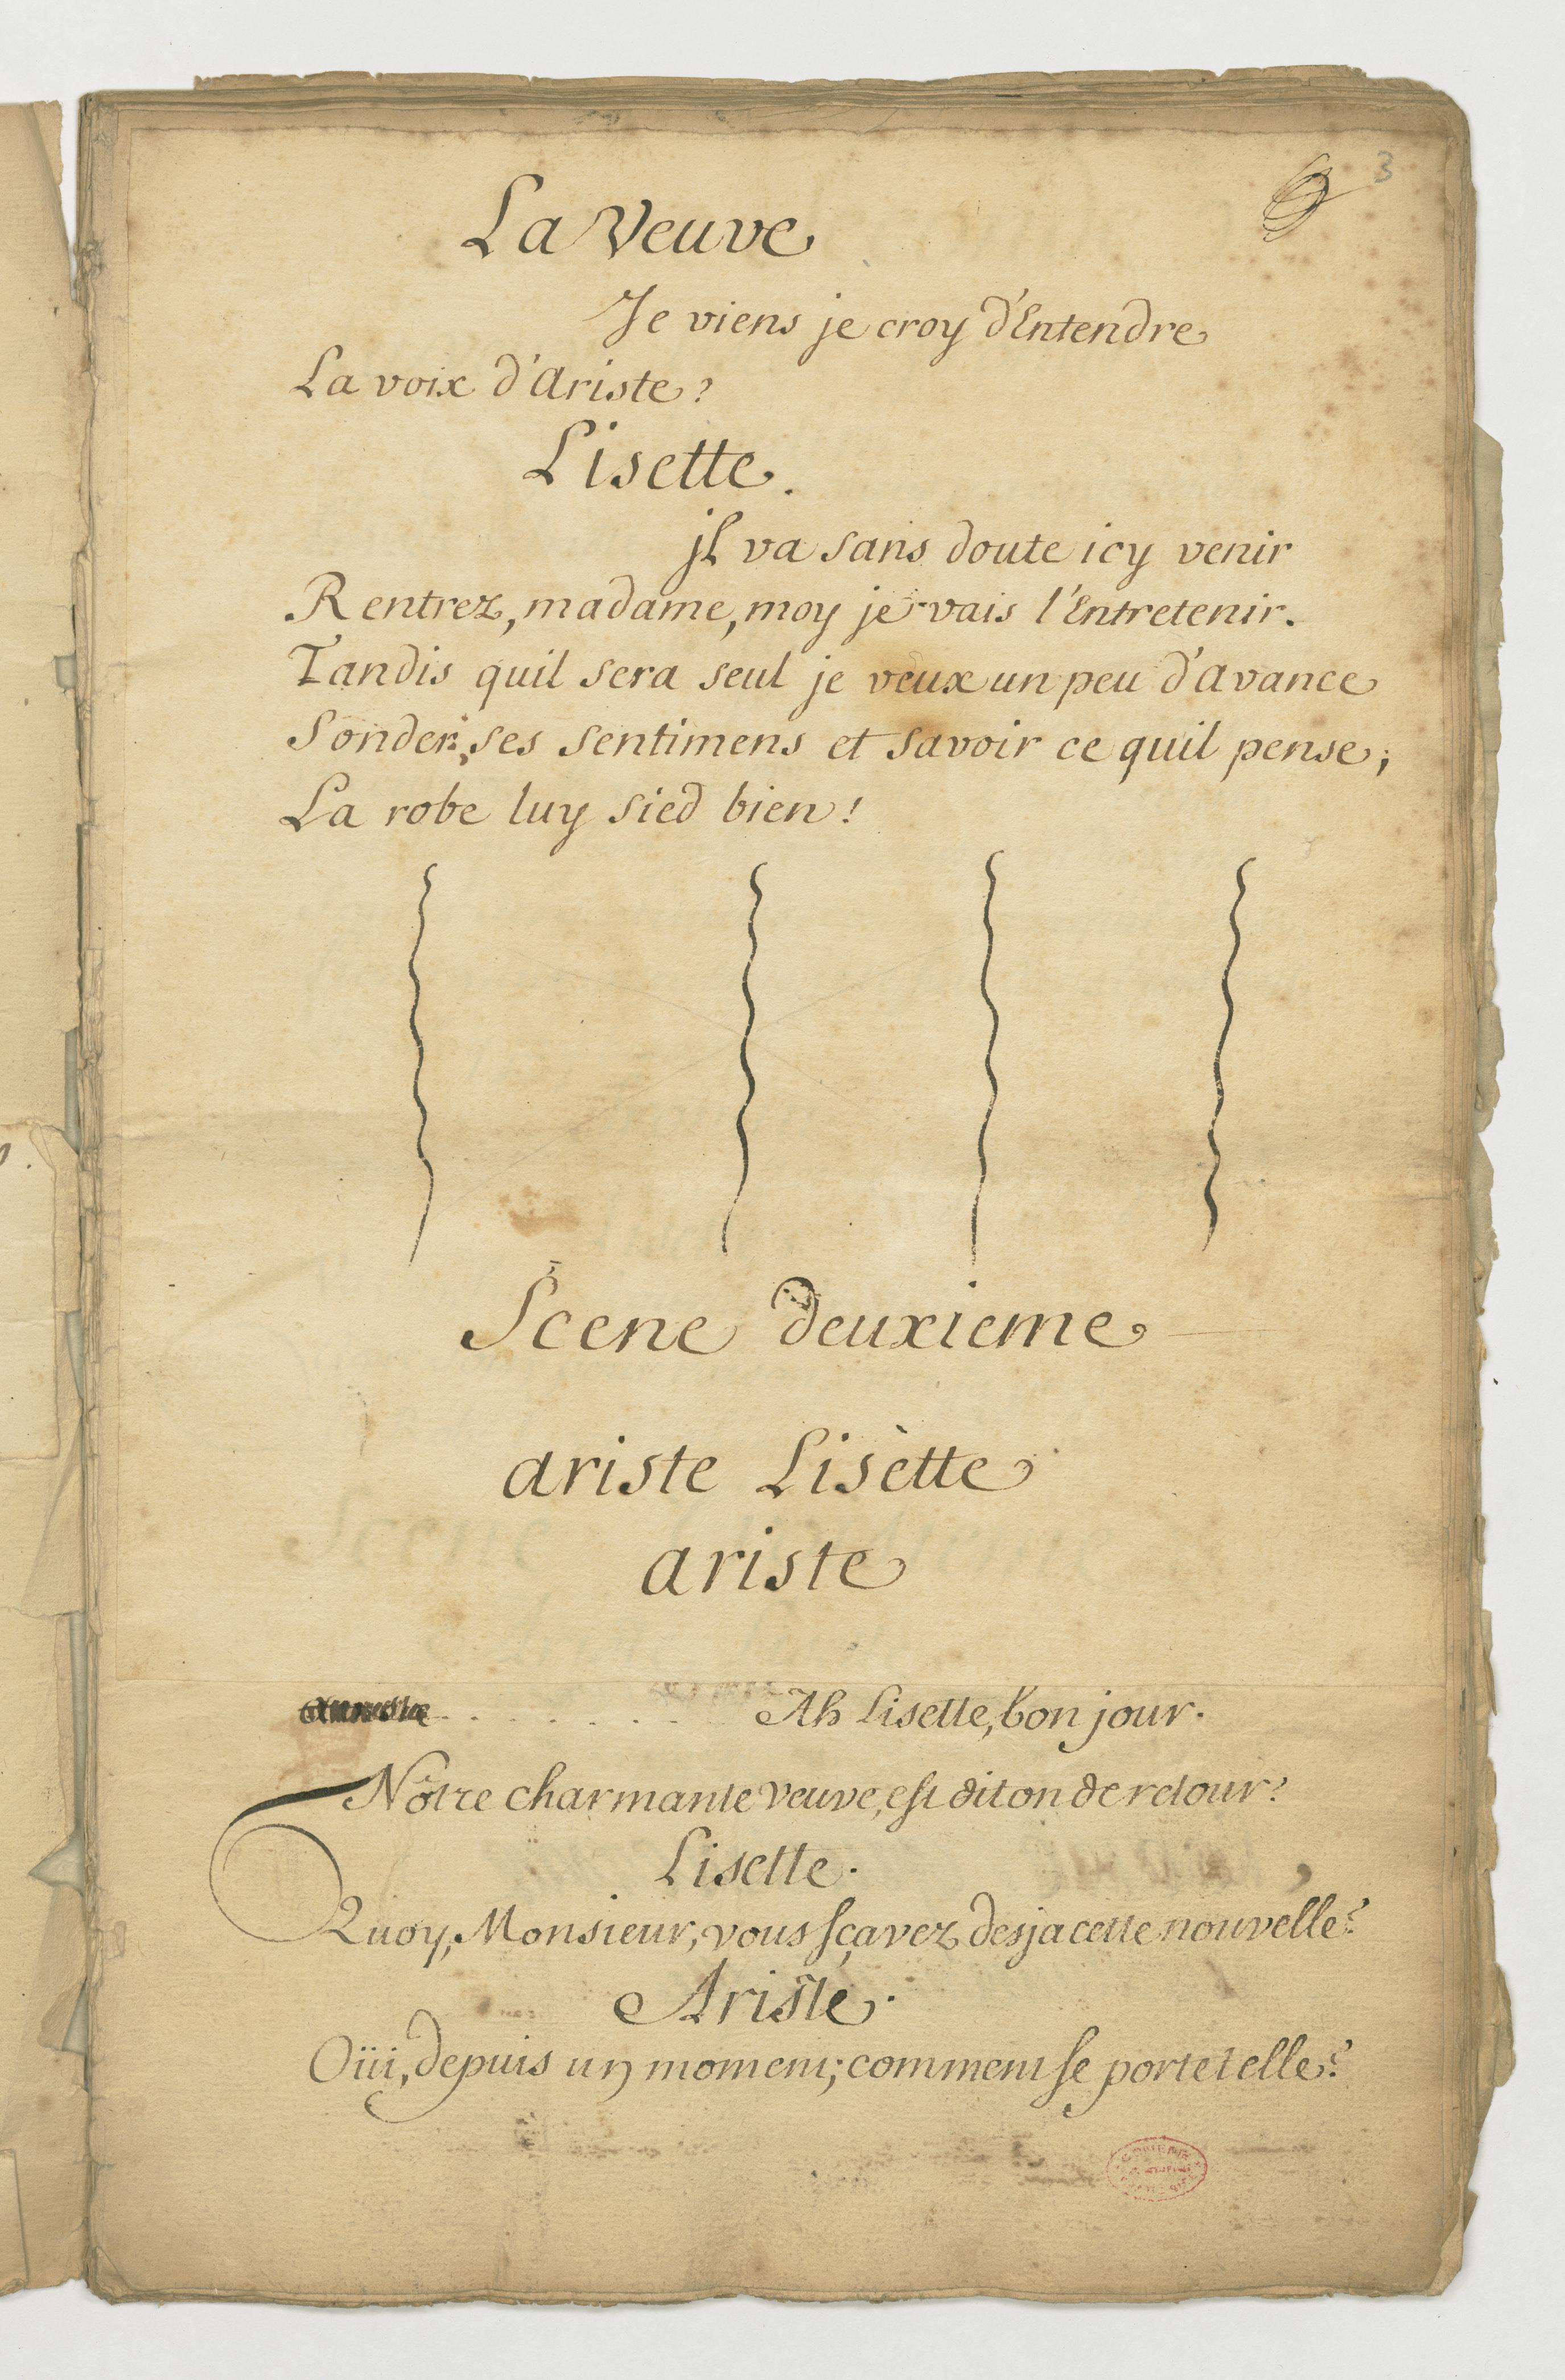 3
La Veuve
Je viens je croy d'Entendre
La voix d'Ariste?
Lisette.
jl va sans doute icy venir
Rentrez, madame, moy je vais l'Entretenir.
Tandis quil sera seul je veux un peu d'avance
Sonder, ses sentimens et savoir ce quil pense;
La robe luy sied bien!
Scene deuxieme
ariste Lisètte
ariste
. . . . . . . . Ah Lisette, bon jour.
Nôtre charmante veuve, est dit on de retour?
Lisette.
Quoy, Monsieur, vous sçavez desja cette nouvelle?
Ariste.
Oüi, depuis un moment; comment se porte t elle?